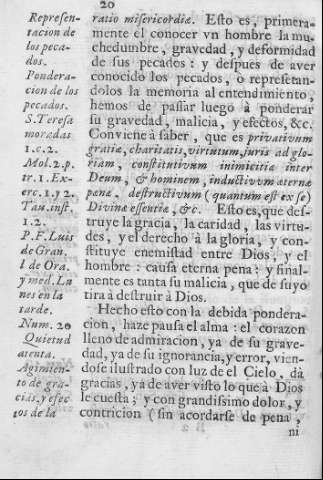 20
Represen-
tacion de
los peca-
dos.
Pondera-
cion de los
pecados.
S. Teresa
moradas
1. c. 2.
Mol. 2. p.
tr. 1. Ex-
erc. 1. y 2.
Tau. inst.
1. 2.
P. F. Luis
de Gran.
l. de Ora.
y med. Lu
nes en la
tarde.
Num. 20
Quietud
atenta.
Agimien-
to de gra-
cias, y efec
tos de la
ratio misericordiæ. Esto es, primera-
mente el conocer vn hombre la mu-
chedumbre, gravedad, y deformidad
de sus pecados: y despues de aver
conocido los pecados, o representan-
dolos la memoria al entendimiento,
hemos de passar luego à ponderar
su gravedad, malicia, y efectos, &c.
Conviene à saber, que es privativum
gratiæ, charitatis, virtutum, juris ad glo-
riam, constitutivum inimicitiæ inter
Deum, & hominem, inductivum æternæ
pænæ, destructivum (quantum est ex se)
Divinæ essentiæ, &c. Esto es, que des-
truye la gracia, la caridad, las virtu-
des, y el derecho à la gloria, y cons-
tituye enemistad entre Dios, y el
hombre: causa eterna pena; y final-
mente es tanta su malicia, que de suyo
tira à destruir à Dios.
Hecho esto con la debida pondera-
cion, haze pausa el alma: el corazon
lleno de admiracion, ya de su grave-
dad, ya de su ignorancia, y error, vien-
dose ilustrado con luz de el Cielo, dà
gracias, yà de aver visto lo que à Dios
le cuesta; y con grandissimo dolor, y
contricion (sin acordarse de pena,
ni